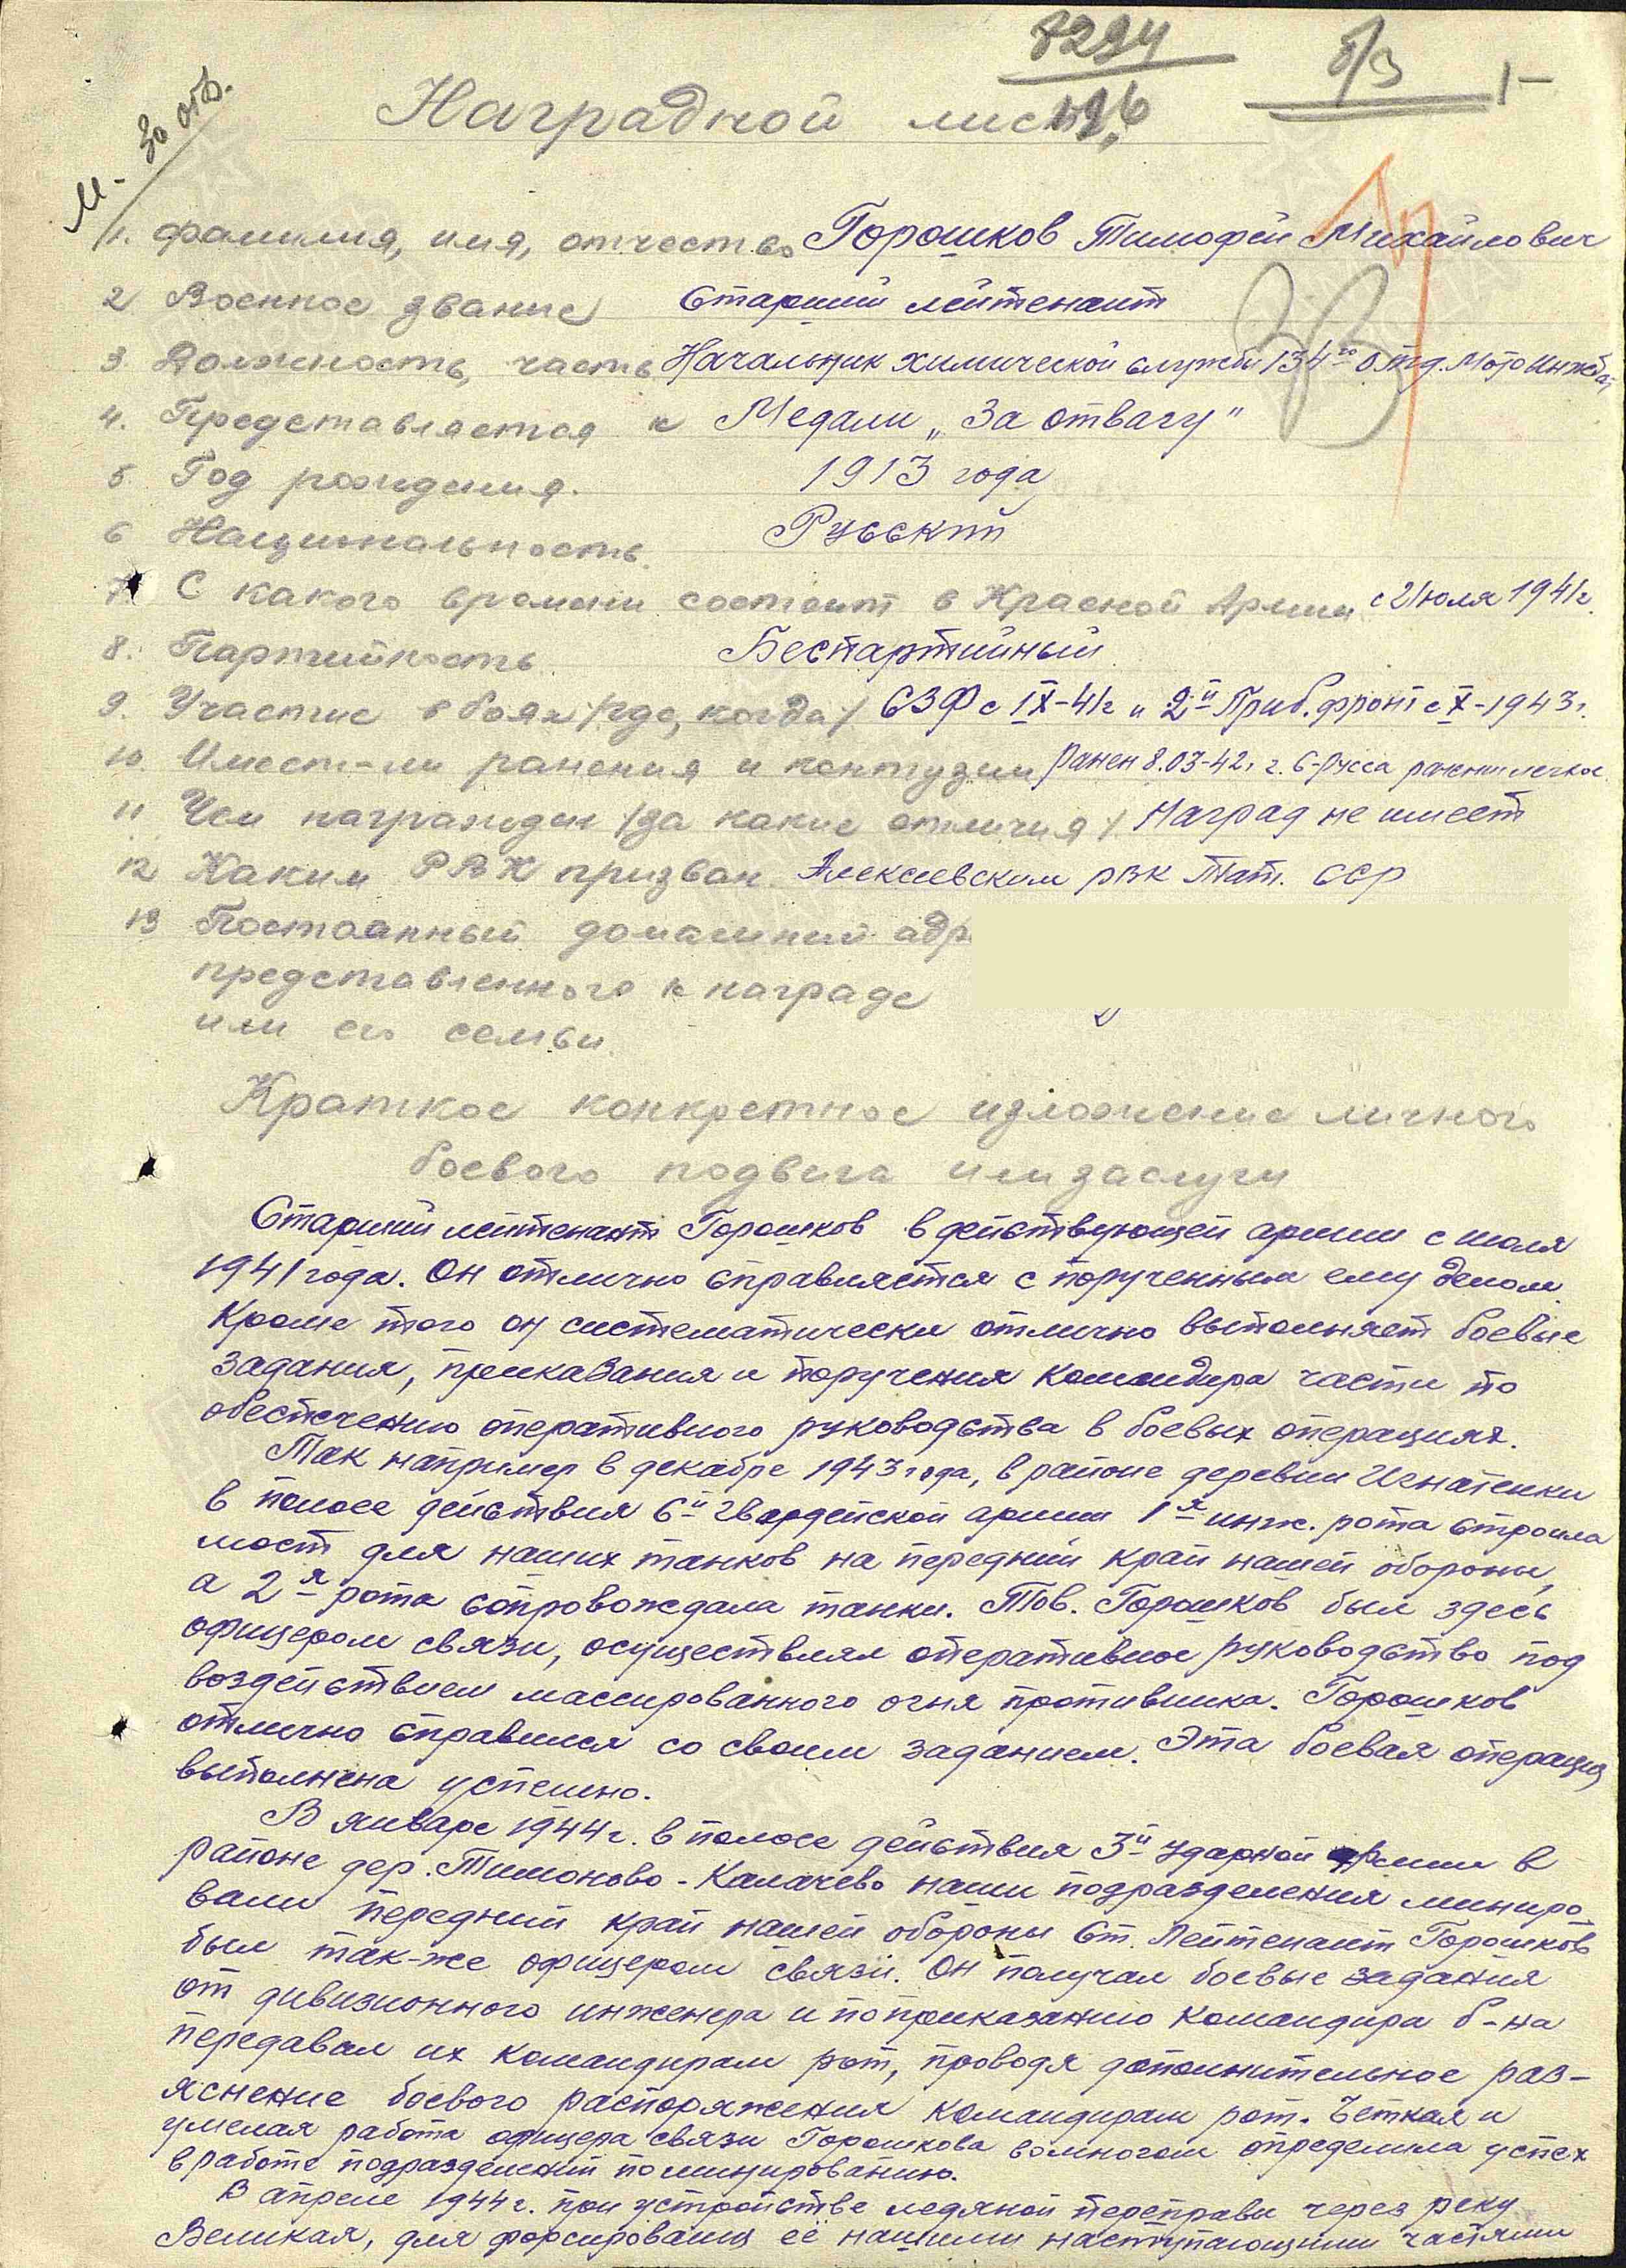 8294
б/з 1-
М - За отв.
Наградной лист
1. Фамилия, имя, отчество Горошков Тимофей Михайлович
2 Военное звание Старший лейтенант
3. Должность, часть Начальник химической службы 134го Отд. Мото Инж бат
4. Представляется к Медали „За отвагу"
5. Год рождения. 1913 года
6 Национальность. Русский
7. С какого времени состоит в Красной Армии с 2 Июля 1941г.
8. Партийность Беспартийный
9. Участие в боях /где, когда/ СЗФ с IX-41г и 2й Приб. фронт с X-1943г.
10. Имеет-ли ранения и контузии Ранен 8.03-42г. г. С-Русса ранение легкое
11 Чем награжден /за какие отличия/ Наград не имеет
12 Каким РВК призван. Алексеевским РВК Тат. ССР
13 Постоянный домашний адр
представленного к награде
или его семьи.
Краткое конкретное изложение личного
боевого подвига или заслуги
Старший лейтенант Горошков в действующей армии с июля
1941 года. Он отлично справляется с порученным ему делом.
Кроме того он систематически отлично выполняет боевые
задания, приказания и поручения командира части по
обеспечению оперативного руководства в боевых операциях.
Так например в декабре 1943 года, в районе деревни Игнатенки
в полосе действия 6й гвардейской армии 1я инж. рота строила
мост для наших танков на передний край нашей обороны,
а 2я рота сопровождала танки. Тов. Горошков был здесь
офицером связи, осуществлял оперативное руководство под
воздействием массированного огня противника. Горошков
отлично справился со своим заданием. Эта боевая операция
выполнена успешно.
В январе 1944г. в полосе действия 3й ударной армии в
районе дер. Тимоново-Калачево наши подразделения миниро
вали передний край нашей обороны Ст. Лейтенант Горошков
был так-же офицером связи. Он получал боевые задания
от дивизионного инженера и по приказанию командира б-на
передавал их командирам рот, проводя дополнительное раз-
яснение боевого распоряжения командирам рот. Четкая и
умелая работа офицера связи Горошкова вомногом определила успех
в работе подразделений по минированию.
В апреле 1944г. при устройстве ледяной переправы через реку
Великая, для форсирования её нашими наступающими частями